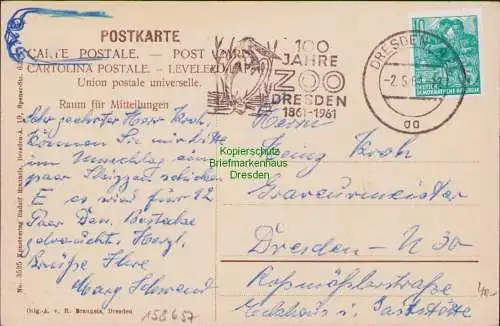 POSTKARTE
CARTE POSTALE. — POST CARD
CARTOLINA POSTALE. — LEVELEZŐ-LAP
Union postale universelle.
Raum für Mitteilungen
Sehr geehrter Herr Kroh.
Können Sie mir bitte
im Umschlag ein
paar Skizzen schicken
E es wird für 12
Paar Den. Bestecke
gebraucht. Herzl.
Grüße Ihre
Marg Schwend
100
JAHRE
ZOO
DRESDEN
1861-1961
DRESDEN
-2.5.
aa
10
DEUTSCHE
DEMOKRATISCHE REPUBLIK
Herrn
Heinz Kroh
Graveurmeister
Dresden - N 30
Roßmäßlerstraße
Eckhaus u. Gaststätte
Kopierschutz
Briefmarkenhaus
Dresden
No. 3525 Kunstverlag Rudolf Brauneis, Dresden-A. 19,
Orig.-A. v. R. Brauneis, Dresden
158657
40-